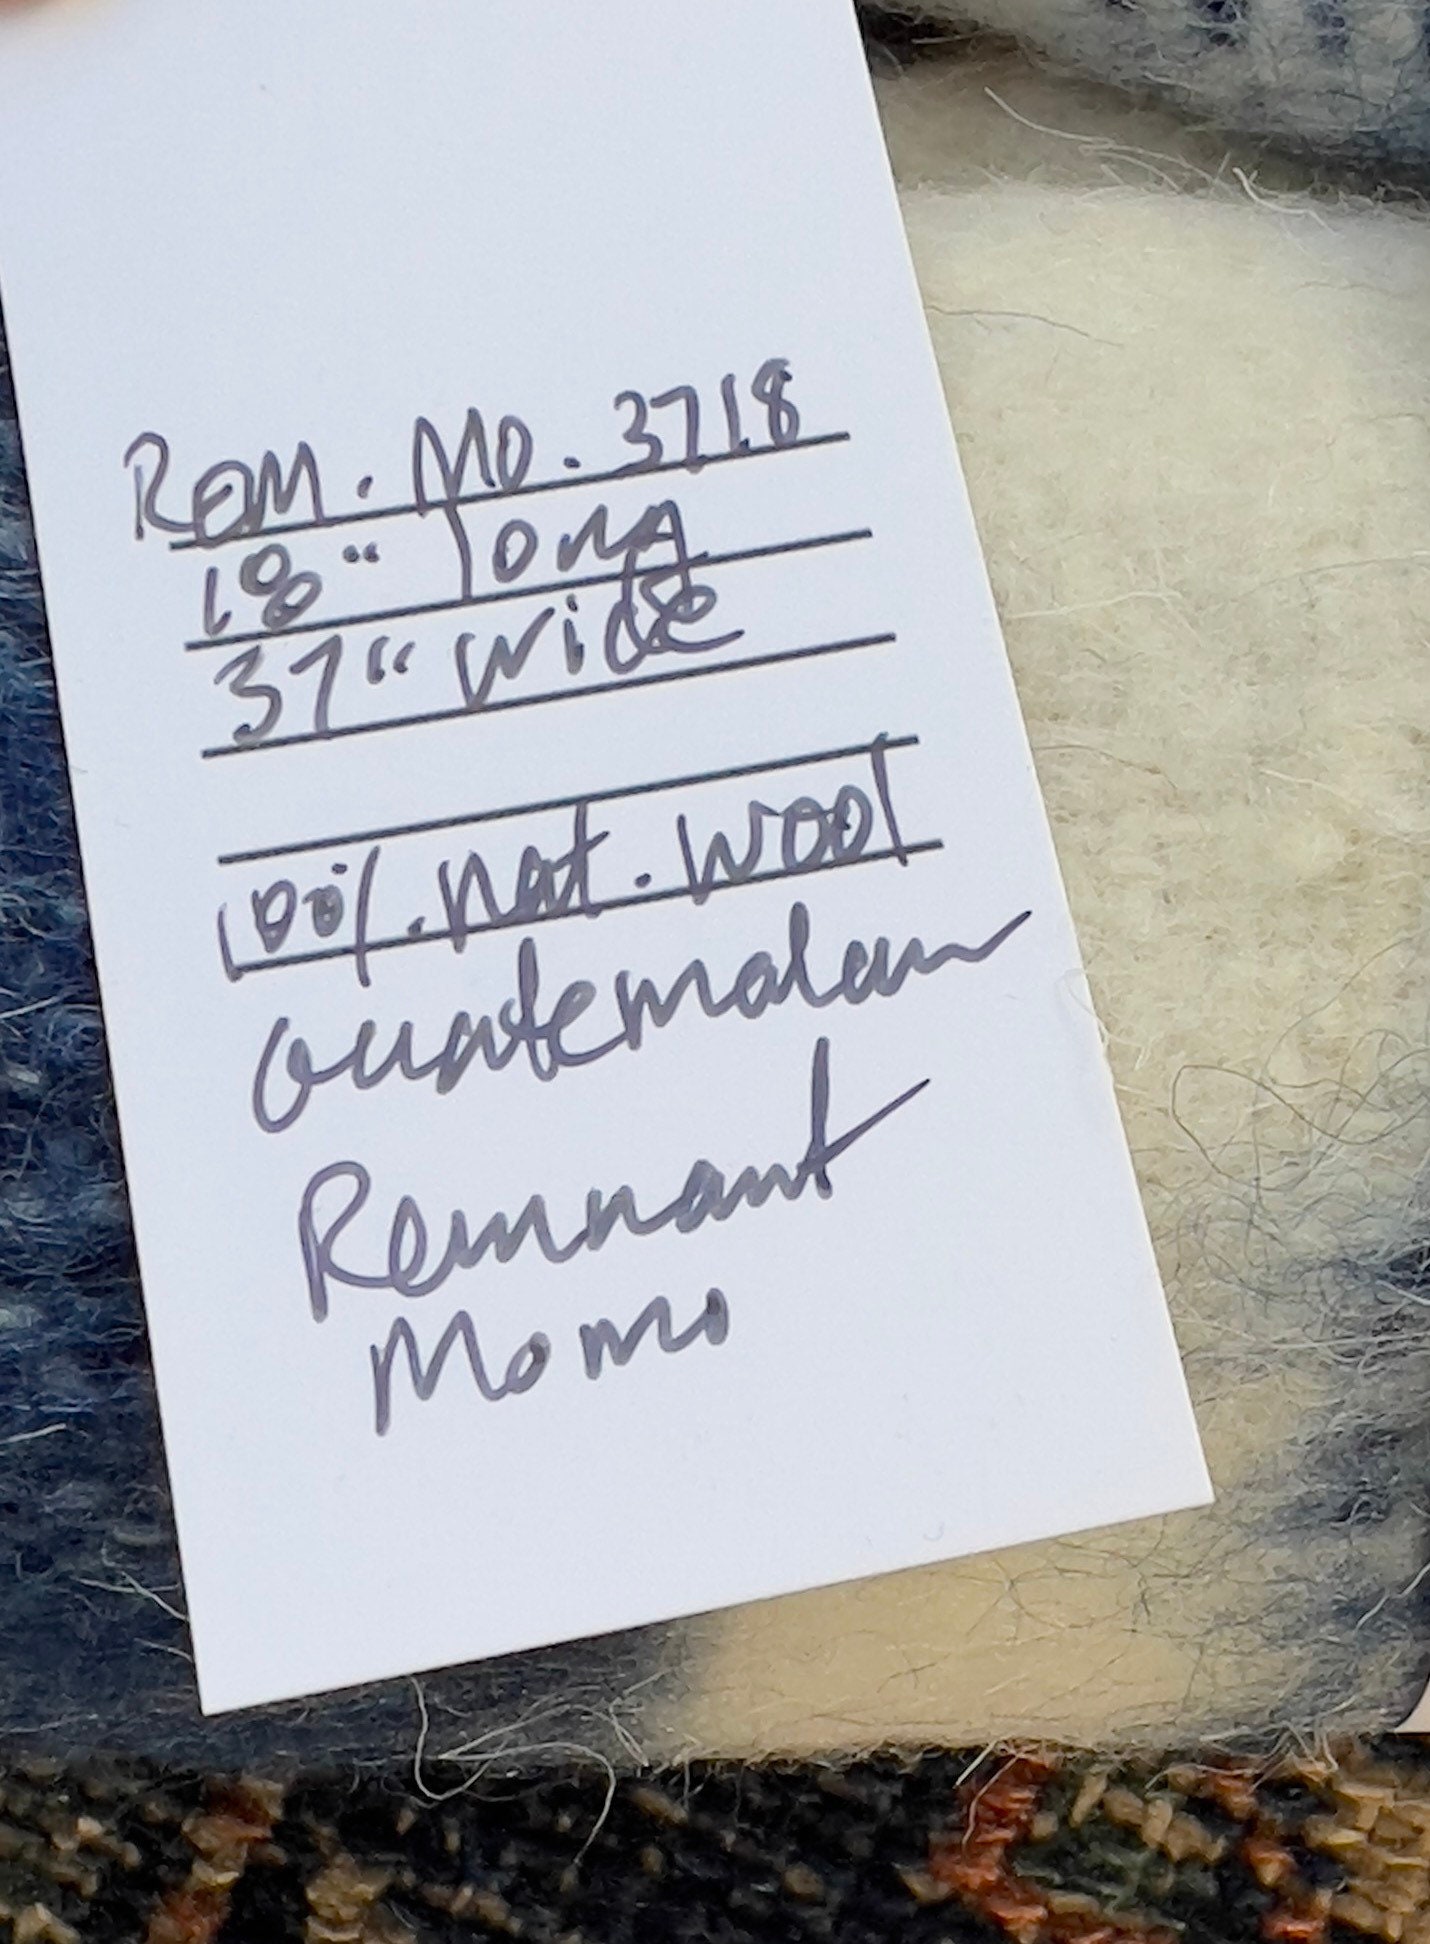 Rem. Mo. 3718
18" long
37" wide
100%. nat. wool
Guatemalan
Remnant
Momo